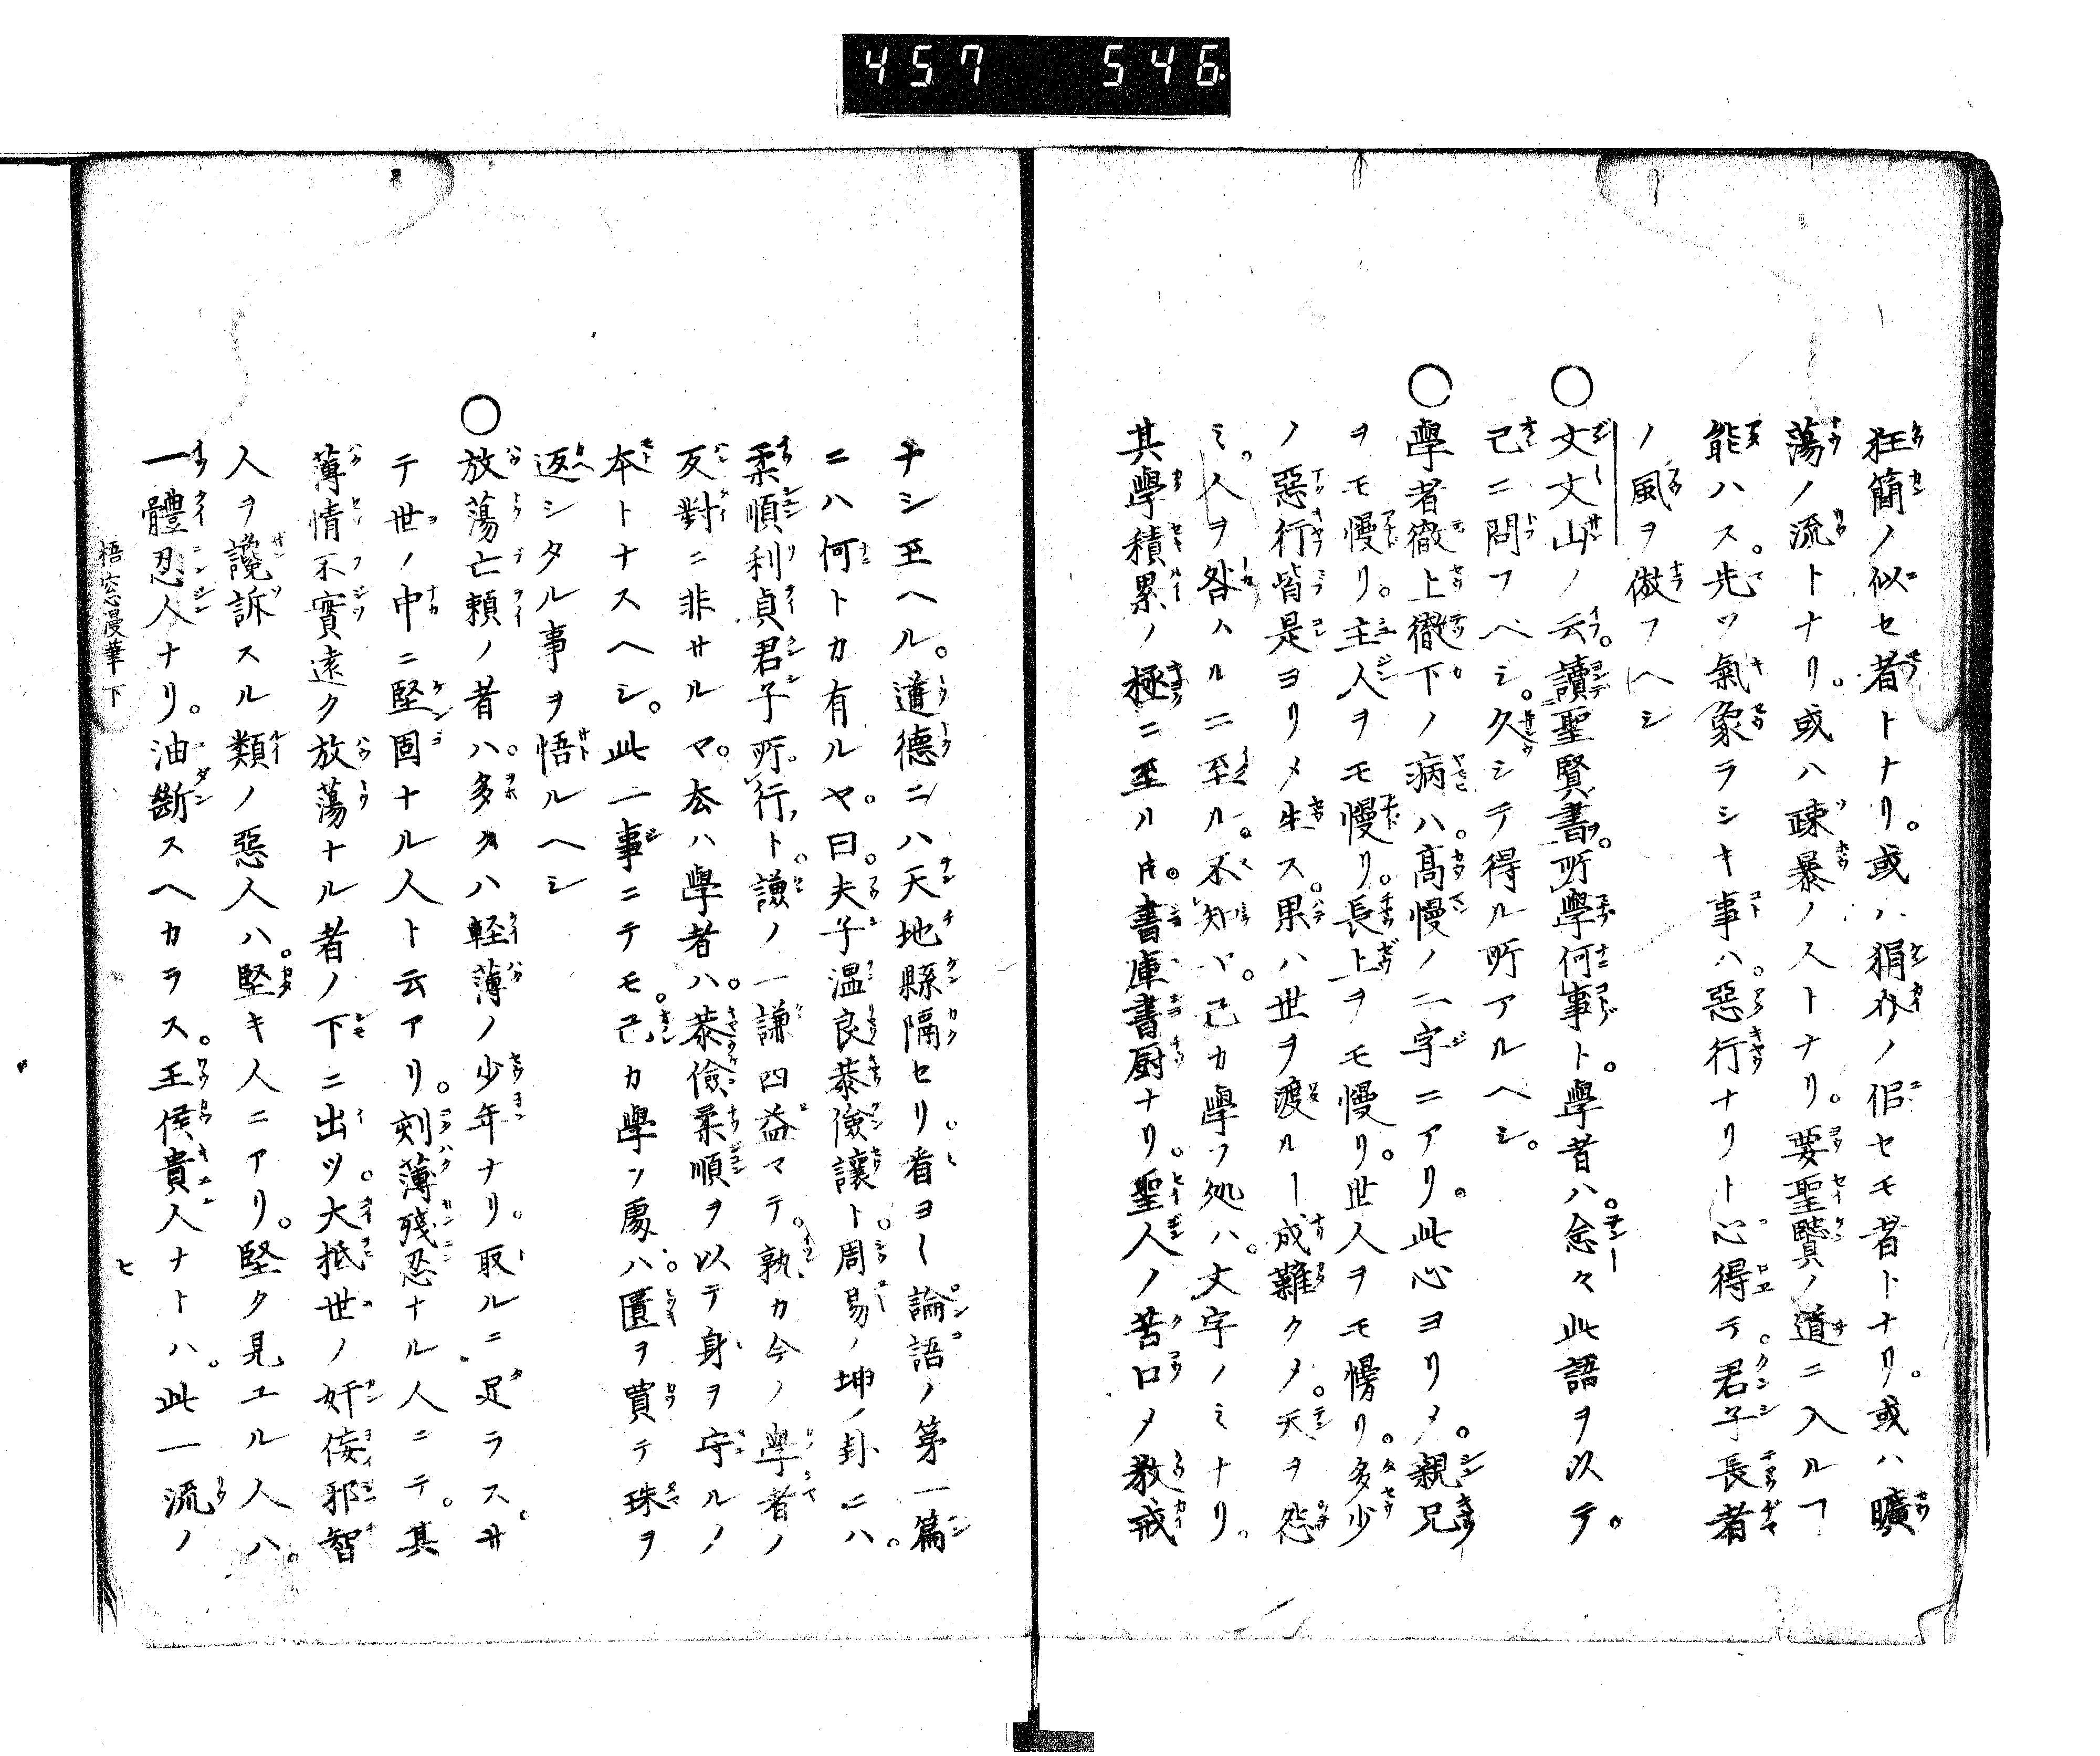 457 546
狂簡ノ似セ者トナリ。或ハ狷介ノ似セモ者トナリ。或ハ曠
蕩ノ流トナリ。或ハ疎暴ノ人トナリ。要聖賢ノ道ニ入ルヿ
能ハス。先ツ氣象ラシキ事ハ。惡行ナリト心得テ。君子長者
ノ風ヲ倣フヘシ
○文文山ノ云。讀聖賢書。所學何事ト。學者ハ。念々此語ヲ以テ。
己ニ問フベシ。久シテ得ル所アルヘシ。
○學者徹上徹下ノ病ハ。高慢ノ二字ニアリ。此心ヨリメ。親兄
ヲモ慢リ。主人ヲモ慢リ。長上ヲモ慢リ。世人ヲモ慢リ。多少
ノ惡行皆是ヨリメ生ス。果ハ世ヲ渡ルー成難クメ。天ヲ怨
ミ。人ヲ咎ハルニ至ル。不知バ。己カ學フ処ハ。文字ノミナリ。
其學積累ノ極ニ至ル片。書庫書厨ナリ。聖人ノ苦口メ教戒
ナシ玉ヘル。道德ニハ天地縣隔セリ。看ヨー論語ノ第一篇
ニハ何トカ有ルヤ。曰。夫子温良恭儉讓ト。周易ノ坤ノ卦ニハ。
柔順利貞君子所行ト。謙ノ一謙四益マテ。孰カ今ノ學者ノ
反對ニ非サルマ。去ハ學者ハ。恭儉柔順ヲ以テ身ヲ守ルノ
本トナスヘシ。此一事ニテモ。己カ學ソ處ハ。匱ヲ買テ珠ヲ
返シタル事ヲ悟ルヘシ
○放蕩亡頼ノ者ハ。多クハ輕薄ノ少年ナリ。取ルニ足ラス。サ
テ世ノ中ニ堅固ナル人ト云アリ。刻薄殘忍ナル人ニテ。其
薄情不實遠ク放蕩ナル者ノ下ニ出ツ。大抵世ノ奸佞邪智
人ヲ讒訴スル類ノ惡人ハ。堅キ人ニアリ。堅ク見エル人ハ。
一體忍人ナリ。油斷スヘカラス。王侯貴人ナトハ。此一流ノ
梧窓漫筆下 七